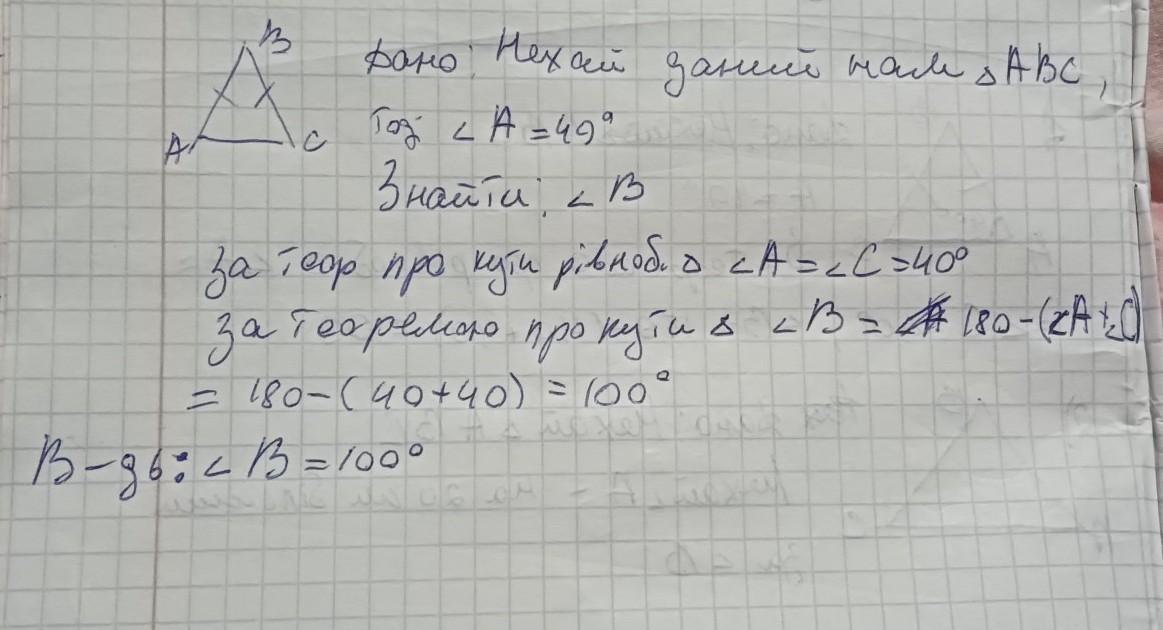 B
Дано: Нехай заний нам △ABC,
A
C
Тоді ∠A = 40°
Знайти: ∠B
За теор про кути рівноб. △ ∠A = ∠C = 40°
За теоремою про кути △ ∠B = 180 - (∠A + ∠C)
= 180 - (40 + 40) = 100°
В-дь: ∠B = 100°